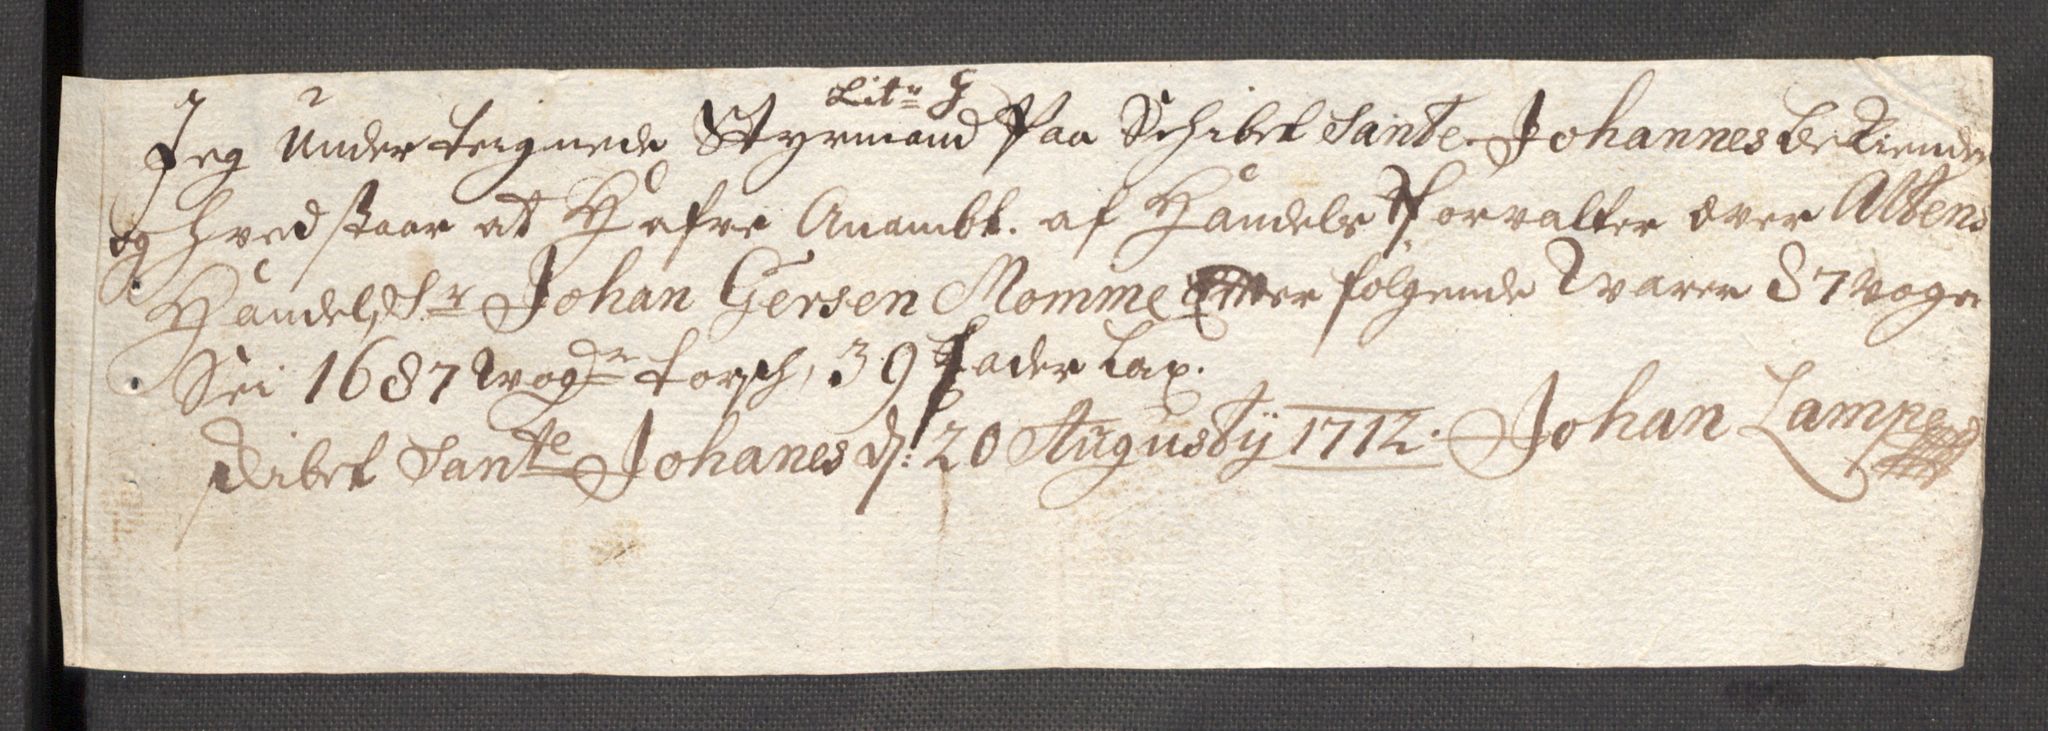 Litr G
Jeg Under teignede Styrmand Paa Schibet Sante Johannes bekiender
og hved staar at Hafve Anambt. af Handels Forvalter over Altens
Handel, Sr Johan Gersen Momme Efter følgende Warer 87 woger
Sei 1687 wogr torsch, 39 fader Lax.
Skibet Sante Johanes d: 20 Augustij 1712. Johan Lampe